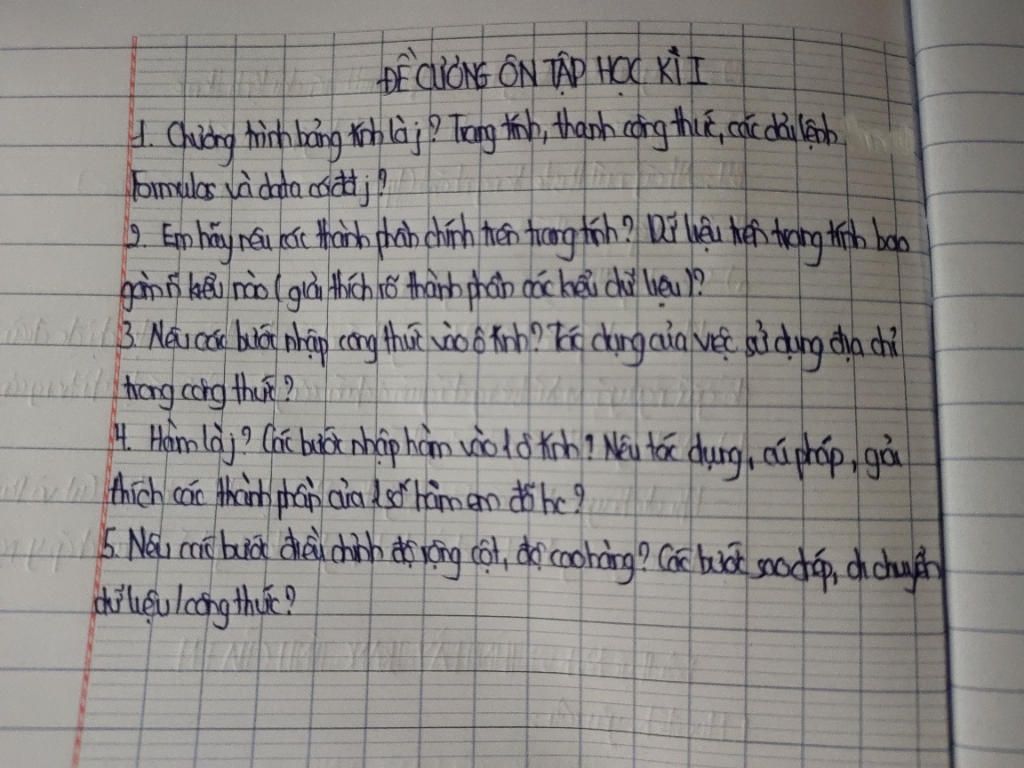 ĐỀ CƯƠNG ÔN TẬP HỌC KÌ I
1. Chương trình bảng tính là j? Trang tính, thanh công thức, các dải lệnh
Formulas và data có đđ j?
2. Em hãy nêu các thành phần chính trên trang tính? Dữ liệu trên trang tính bao
gồm n kiểu nào (giải thích rõ thành phần các kiểu dữ liệu)?
3. Nêu các bước nhập công thức vào ô tính? Tác dụng của việc sử dụng địa chỉ
trong công thức?
4. Hàm là j? Các bước nhập hàm vào 1 ô tính? Nêu tác dụng, cú pháp, giải
thích các thành phần của 1 số hàm em đã hc?
5. Nêu các bước điều chỉnh độ rộng cột, độ cao hàng? Các bước sao chép, di chuyển
dữ liệu/công thức?